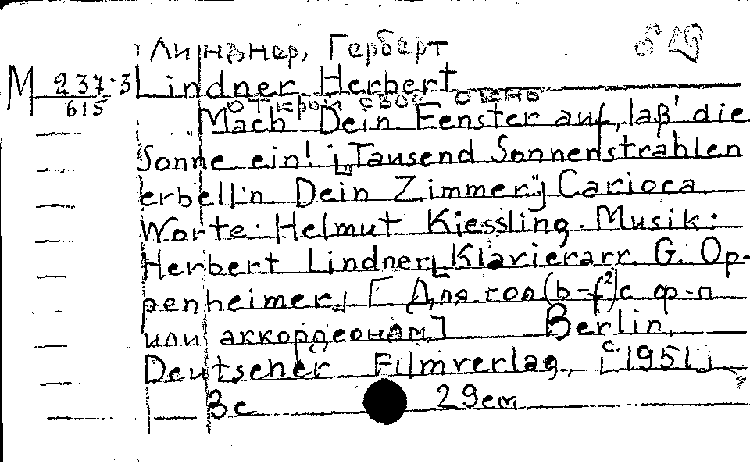 Линднер, Герберт
M 237-3 Lindner, Herbert
615 открой свое окно
Mach' Dein Fenster auf, laß' die
Sonne ein! ["Tausend Sonnenstrahlen
erhell'n Dein Zimmer"] Carioca
Worte: Helmut Kiessling. Musik:
Herbert Lindner, Klavierarr. G. Op-
penheimer. [Для гол(b-f²) с ф-п
или аккордеоном] Berlin,
Deutscher Filmverlag, [c 1951]
3c 29cm